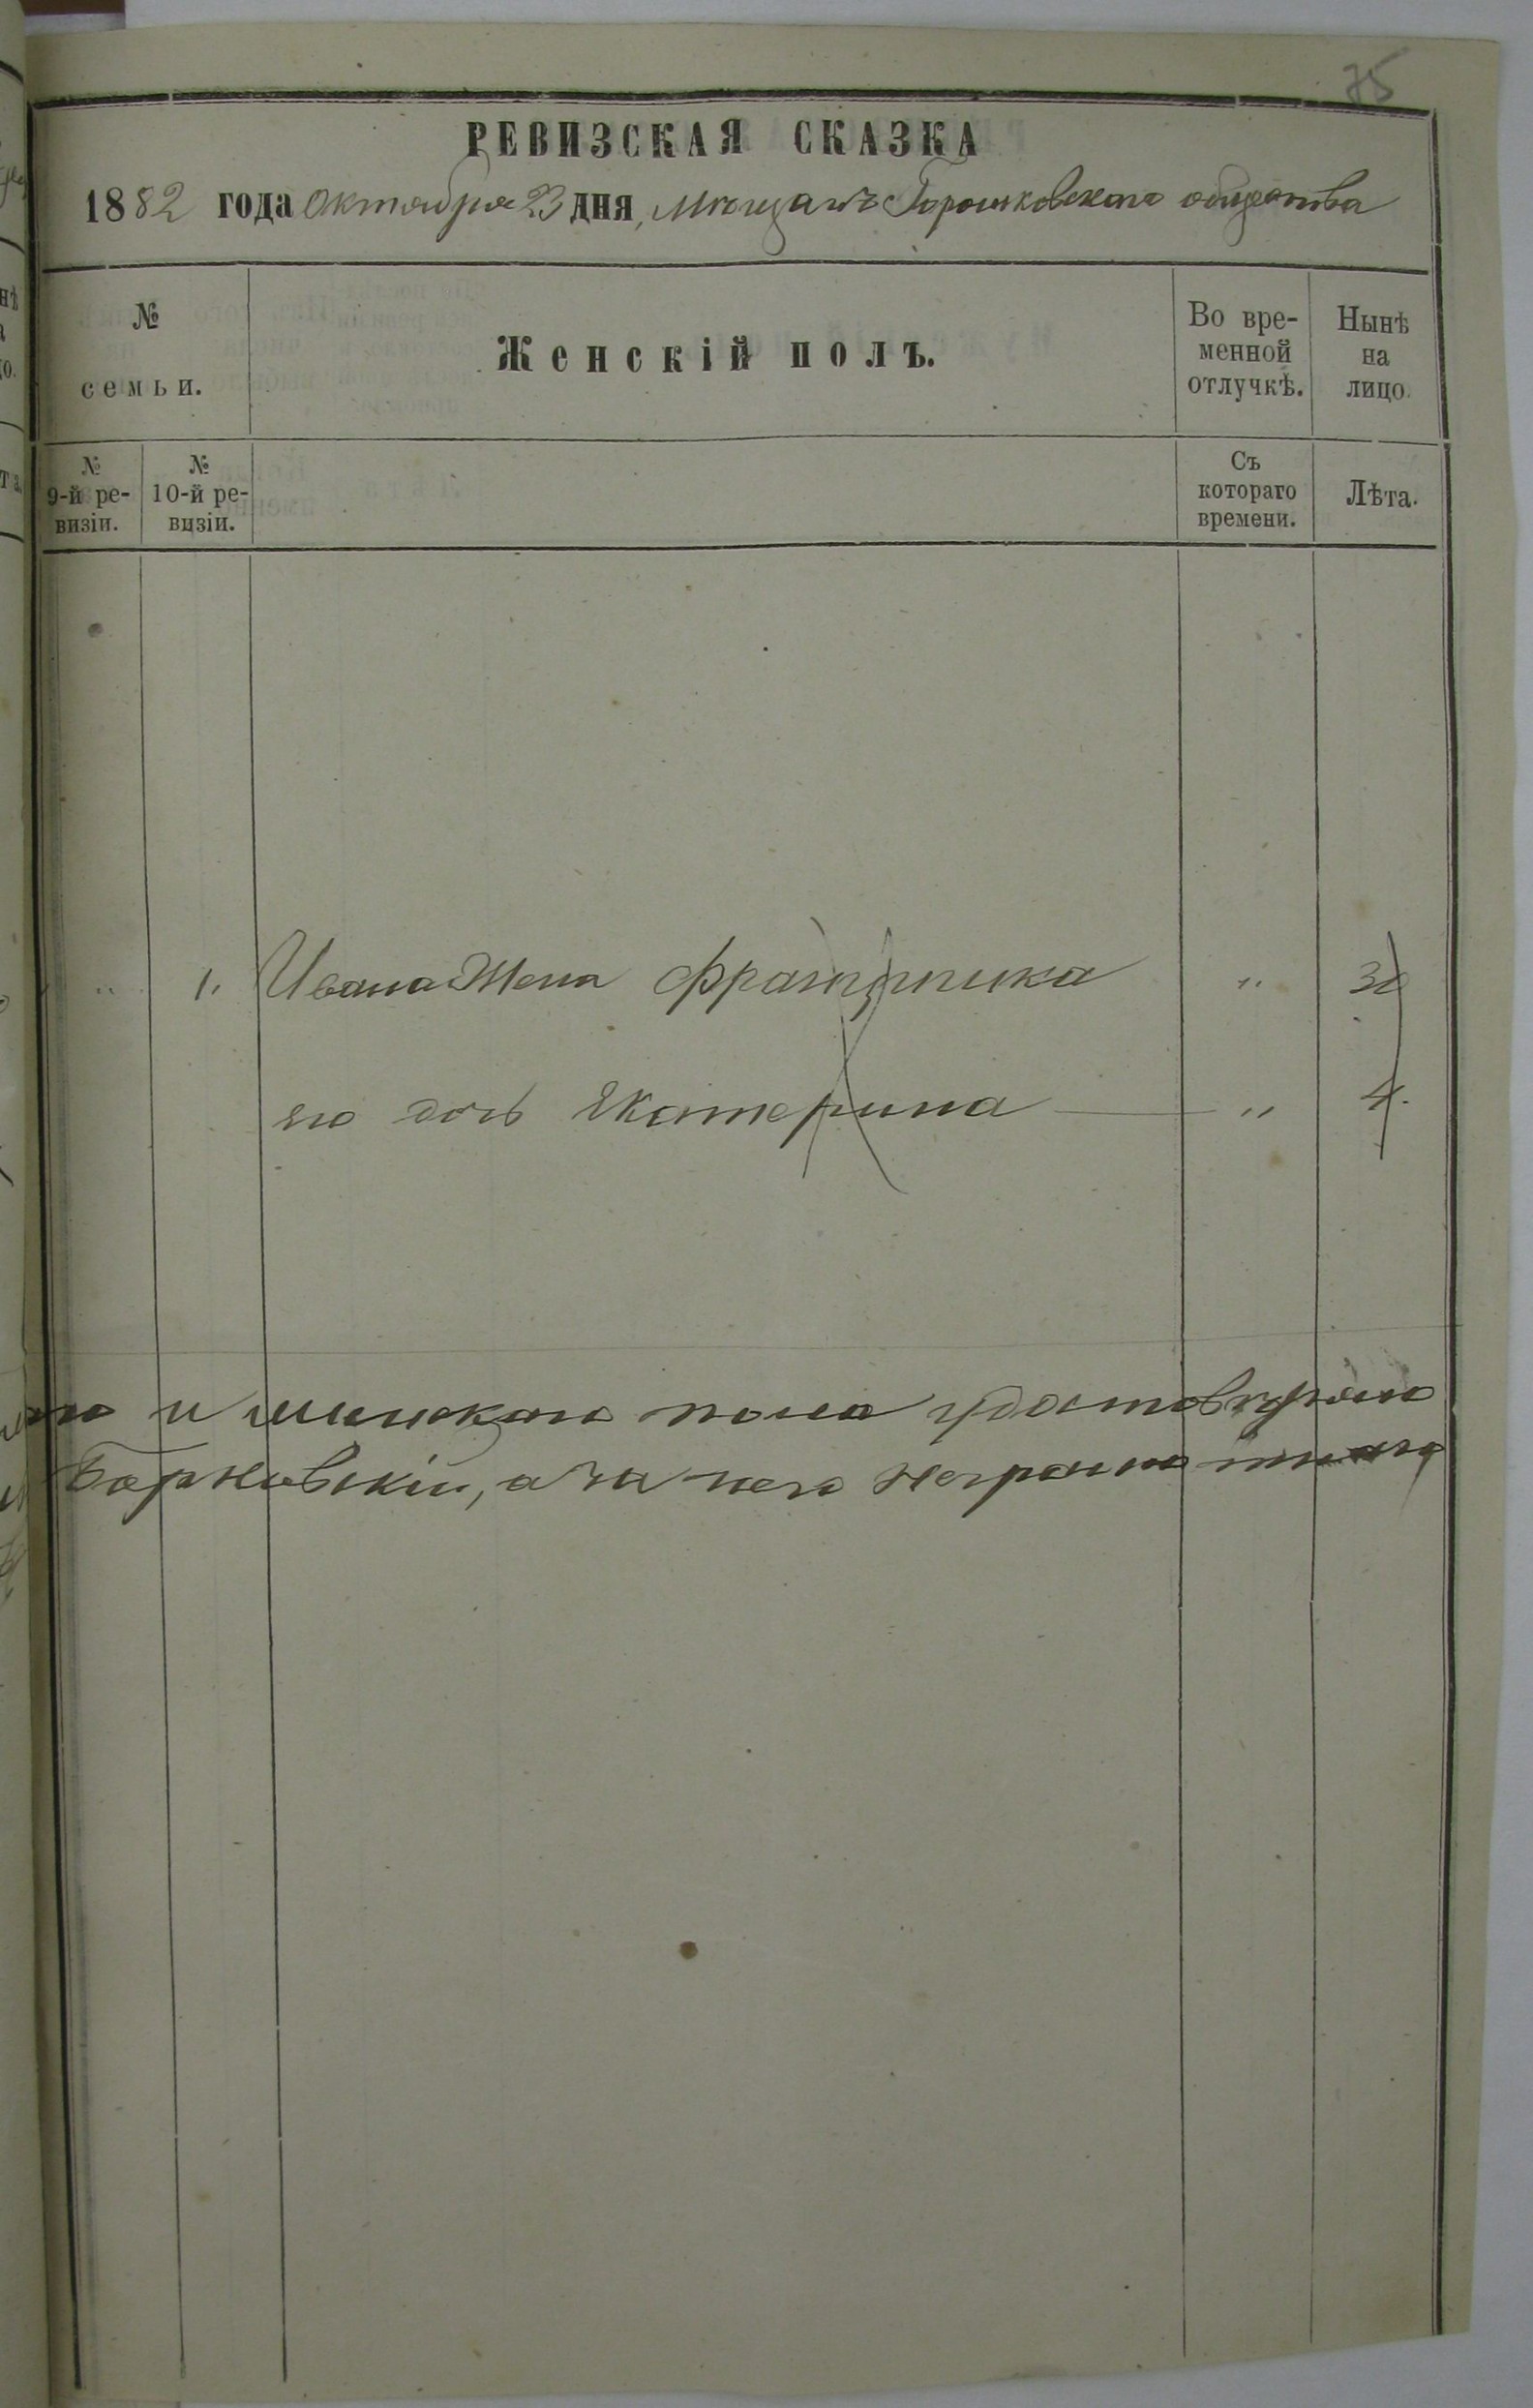 75
РЕВИЗСКАЯ СКАЗКА
1882 года Октября 23 дня, Мѣщанъ Горошковскаго общества
№ семьи.
Женскій полъ.
Во вре-
менной
отлучкѣ.
Нынѣ
на
лицо.
№
9-й ре-
визіи.
№
10-й ре-
визіи.
Съ
котораго
времени.
Лѣта.
„ 1. Ивана Жена Францишка „ 30
его дочь Екатерина „ 4.
и женскаго пола удостовѣряю
Барковскій, а за него неграмотнаго